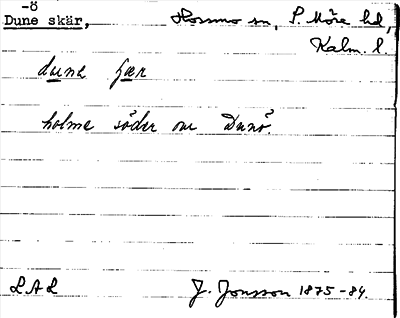 -ö
Dune skär, Hossmo sn, S. Möre hd,
Kalm. l.
dune
holme söder om Dunö.
LAL J. Jonsson 1875-84.